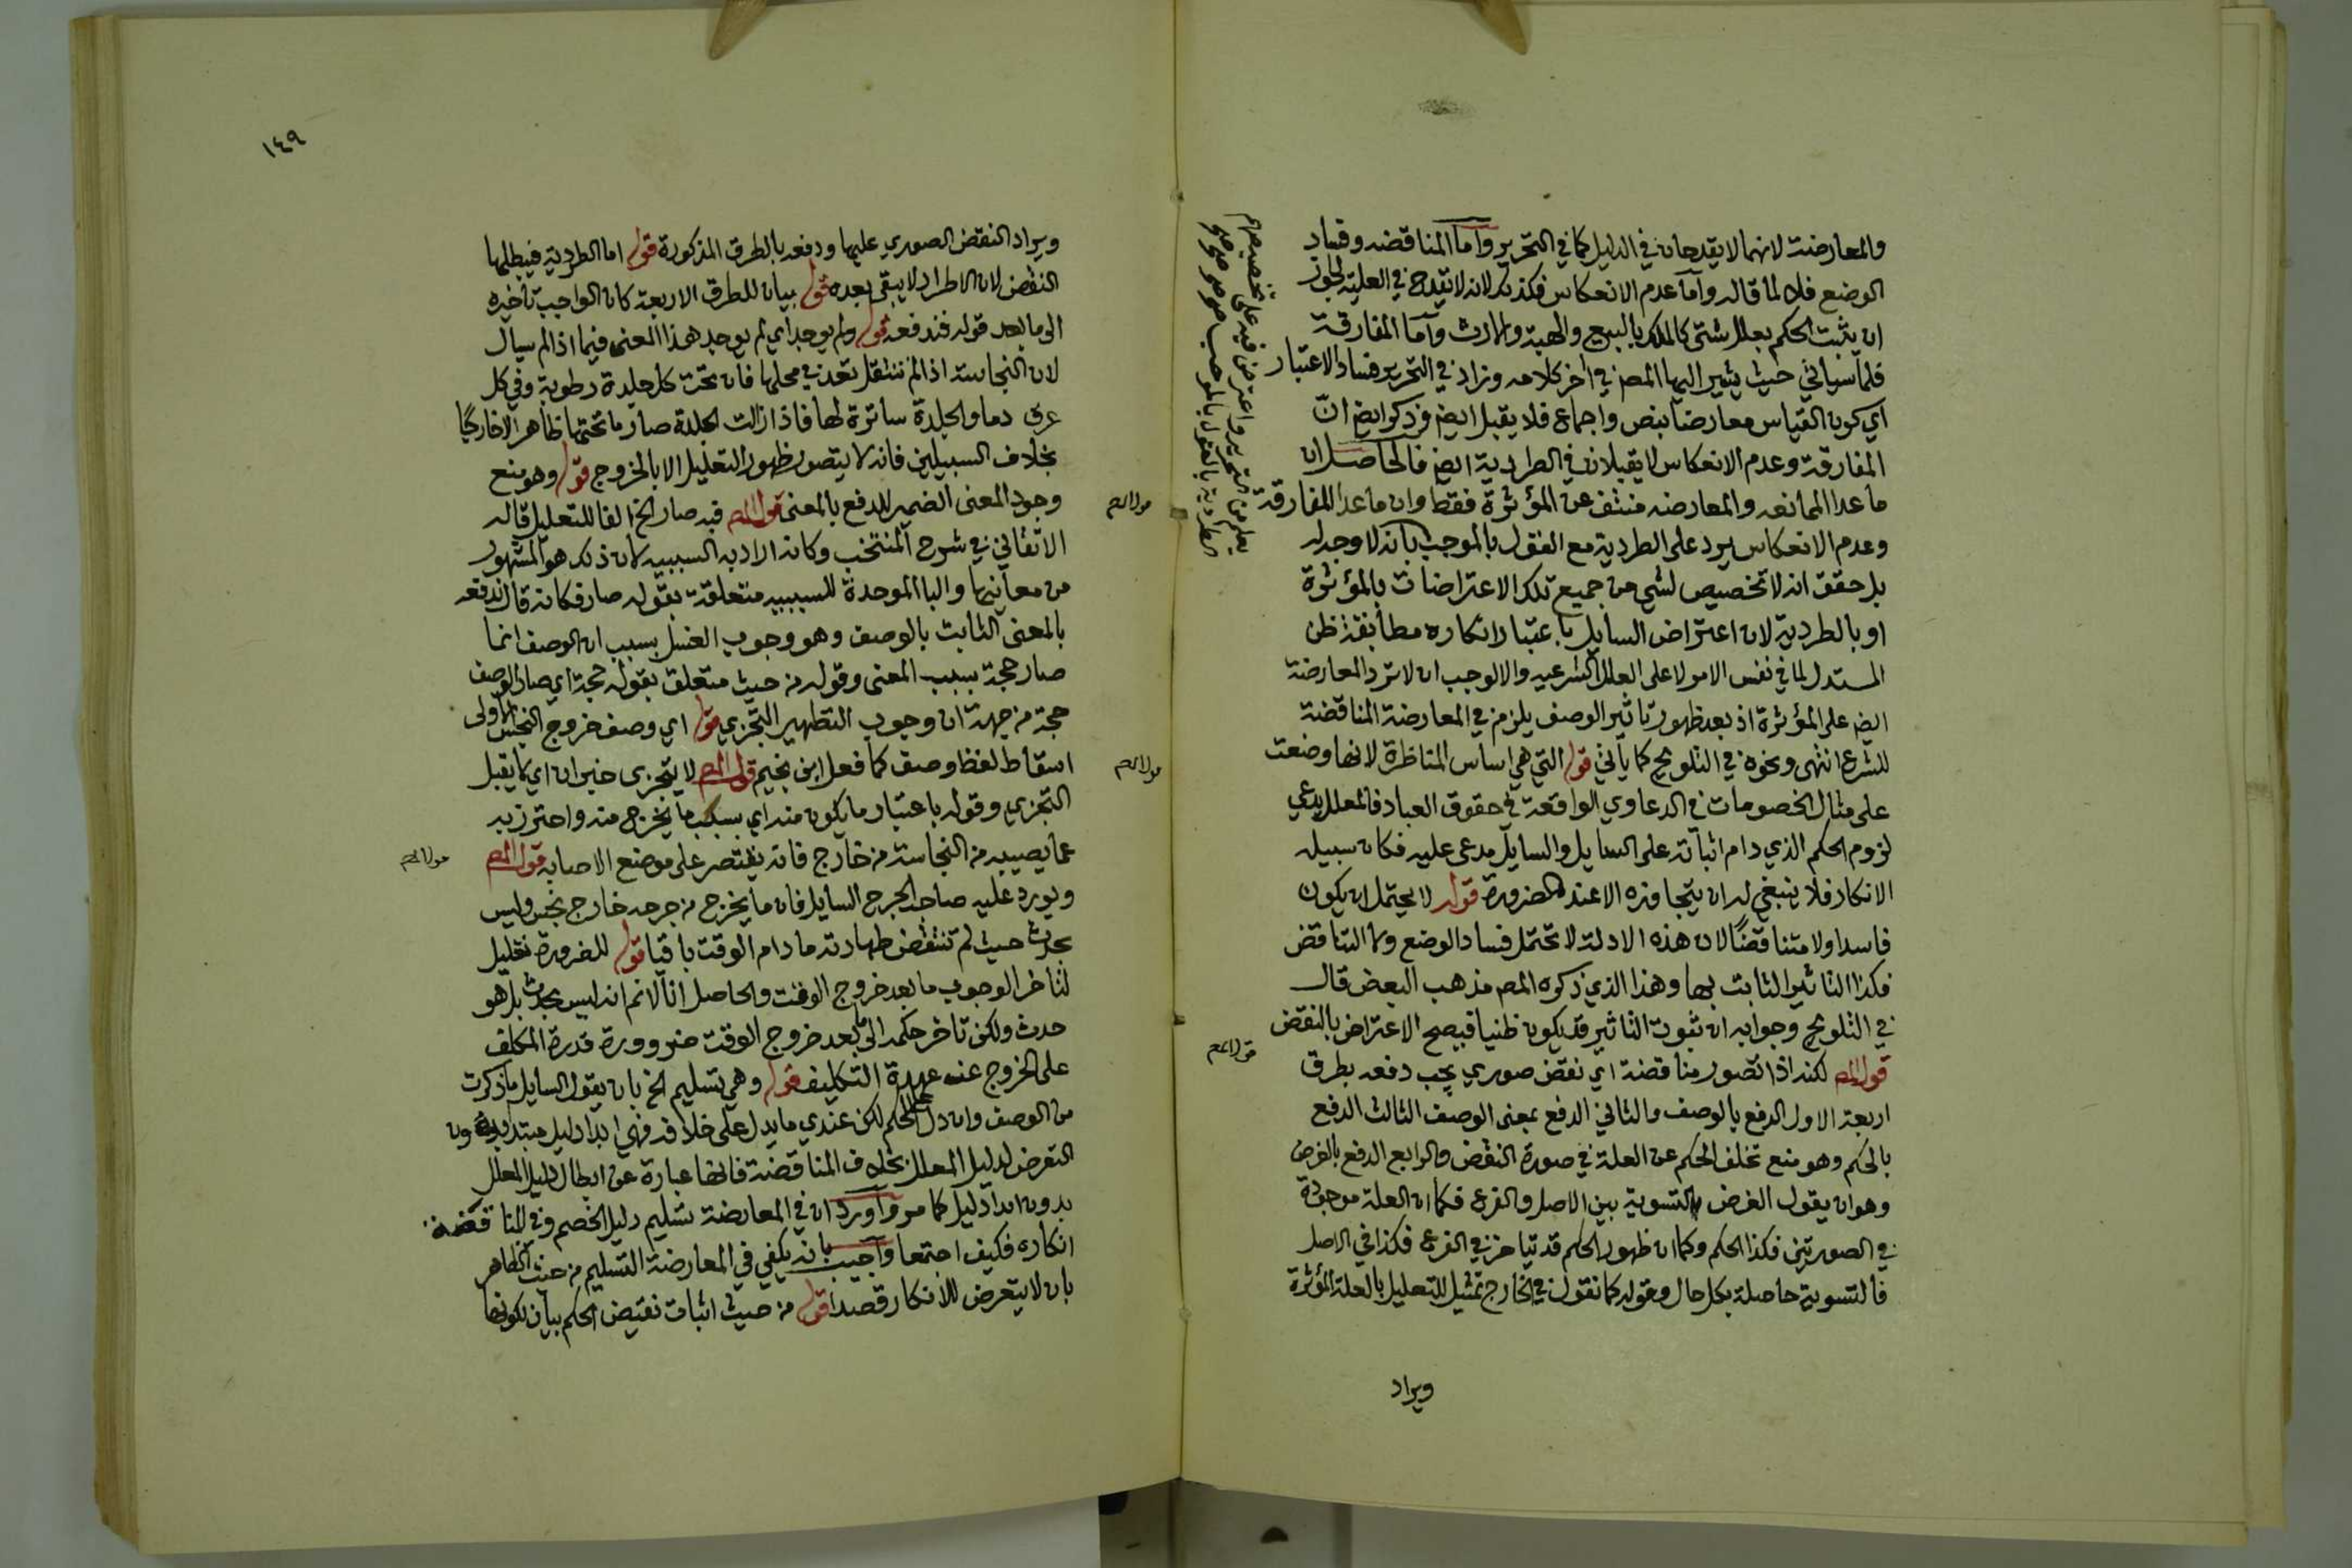 والمعارضة لانهما لا يقدحان في الدليل كما في التحرير واما المناقضه وفساد
الوضع فلا لما قاله واما عدم الانعكاس فكذلك لانه لا يقدح في العلية لجواز
ان يثبت الحكم بعلل شتى كالملك بالبيع والهبة والارث واما المفارقة
فلما سياتي حيث يشير اليها المص في اخر كلامه وزاد في التحرير فساد الاعتبار
اي كون القياس معارضا بنص واجماع فلا يقبل ايض وذكر ايض ان
المفارقة وعدم الانعكاس لا يقبلان في الطردية ايض فالحاصل ان
ما عدا الممانعه والمعارضه منتف عن المؤثرة فقط وان ما عدا المفارقة
وعدم الانعكاس يرد على الطردية مع القول بالموجب بانه لا وجه له
بل حقق انه لا تخصيص لشي من جميع تلك الاعتراضات بالمؤثرة
او بالطردية لان اعتراض السايل باعتبار انكاره مطابقة ظن
المستدل لما في نفس الامر لا على العلل الشرعيه والا لوجب ان لا ترد المعارضة
ايض على المؤثرة اذ بعد ظهور تاثير الوصف يلزم في المعارضة المناقضة
للشرع انتهى ونحوه في التلويح كما ياتي قوله التي هي اساس المناظرة لانها وضعت
على مثال الخصومات في الدعاوي الواقعة في حقوق العباد فالمعلل يدعي
لزوم الحكم الذي رام اثباته على السايل والسايل مدعى عليه فكان سبيله
الانكار فلا ينبغي له ان يتجاوزه الا عند الضرورة قوله لا يحتمل ان يكون
فاسدا ولا متناقضًا لان هذه الادلة لا تحتمل فساد الوضع ولا التناقض
فكذا التاثير الثابت بها وهذا الذي ذكره المص مذهب البعض قال
في التلويح وجوابه ان ثبوت التاثير قد يكون ظنيا فيصح الاعتراض بالنقض
قول المص لكنه اذا تصور مناقضة اي نقض صوري يجب دفعه بطرق
اربعة الاول الدفع بالوصف والثاني الدفع بمعنى الوصف الثالث الدفع
بالحكم وهو منع تخلف الحكم عن العلة في صورة النقض والرابع الدفع بالغرض
وهو ان يقول الغرض التسوية بين الاصل والفرع فكما ان العلة موجودة
في الصورتين فكذا الحكم وكما ان ظهور الحكم قد يتاخر في الفرع فكذا في الاصل
فالتسوية حاصلة بكل حال وقوله كما نقول في الخارج تمثيل للتعليل بالعلة المؤثرة
ويراد
يعلم من التحرير واعترض فيه على تخصيصهم
الطردية بالقول بالموجب
قول المص
١٤٩
ويراد النقض الصوري عليها ودفعه بالطرق المذكورة قوله اما الطردية فيبطلها
النقض لان الاطراد لا يبقى بعده قوله بيان للطرق الاربعة كان الواجب تاخيره
الى ما بعد قوله فندفعه قوله ولم يوجد اي لم يوجد هذا المعنى فيما اذا لم يسل
لان النجاسة اذا لم تنتقل تعد في محلها فان تحت كل جلدة رطوبة وفي كل
عرق دما والجلدة ساترة لها فاذا زالت الجلدة صار ما تحتها ظاهرا لا خارجا
بخلاف السبيلين فانه لا يتصور ظهور التعليل الا بالخروج قوله وهو منع
وجود المعنى الضمير للدفع بالمعنى قول المص فيه صار الخ الفا للتعليل قاله
الاتقاني في شرح المنتخب وكانه اراد به السببيه لان ذلك هو المشهور
من معانيها والبا الموحدة للسببيه متعلقة بقوله صار فكانه قال ندفعه
بالمعنى الثابت بالوصف وهو وجوب الغسل بسبب ان الوصف انما
صار حجة بسبب المعنى وقوله من حيث متعلق بقوله حجة اي صار الوصف
حجة من جهة ان وجوب التطهير التجزي قوله اي وصف خروج النجس الاولى
اسقاط لفظ وصف كما فعل ابن نجيم قول المص لا يتجزى خبر ان اي لا يقبل
التجزي وقوله باعتبار ما يكون منه اي بسبب ما يخرج منه واحترز به
عما يصيبه من النجاسة من خارج فانه يقتصر على موضع الاصابه قول المص
ويورد عليه صاحب الجرح السايل فان ما يخرج من جرحه خارج نجس وليس
بحدث حيث لم تنتقض طهارته ما دام الوقت باقيا قوله للضرورة تعليل
لتاخر الوجوب ما بعد خروج الوقت والحاصل انا لا نم انه ليس بحدث بل هو
حدث ولكن تاخر حكمه الى ما بعد خروج الوقت ضرورة قدرة المكلف
على الخروج عن عهدة التكليف قوله وهي تسليم الخ بان يقول السايل ما ذكرت
من الوصف وان دل على الحكم لكن عندي ما يدل على خلافه فهي ابدا دليل مبتدا بدون
التعرض لدليل المعلل بخلاف المناقضة فانها عبارة عن ابطال دليل المعلل
بدون ابدا دليل كما مر واورد ان في المعارضة تسليم دليل الخصم وفي المناقضة
انكاره فكيف اجتمعا واجيب بانه يكفي في المعارضة التسليم من حيث الظاهر
بان لا يتعرض للانكار قصدا قوله من حيث اثبات نقيض الحكم بيان لكونها
قول المص
قول المص
قول المص